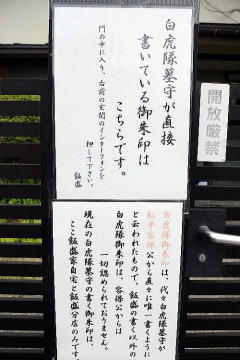 白虎隊墓守が直接
書いている御朱印は
こちらです。
門の中に入り、右前の玄関のインターフォンを
押して下さい。
飯盛
開放厳禁
白虎隊御朱印は、代々白虎隊墓守が
松平容保公から直々に唯一書くように
と云われたもので、飯盛の書く以外の
白虎隊御朱印は、容保公からは
一切認められておりません。
現在の白虎隊墓守の書く御朱印は、
ここ飯盛家自宅と飯盛分店のみです。